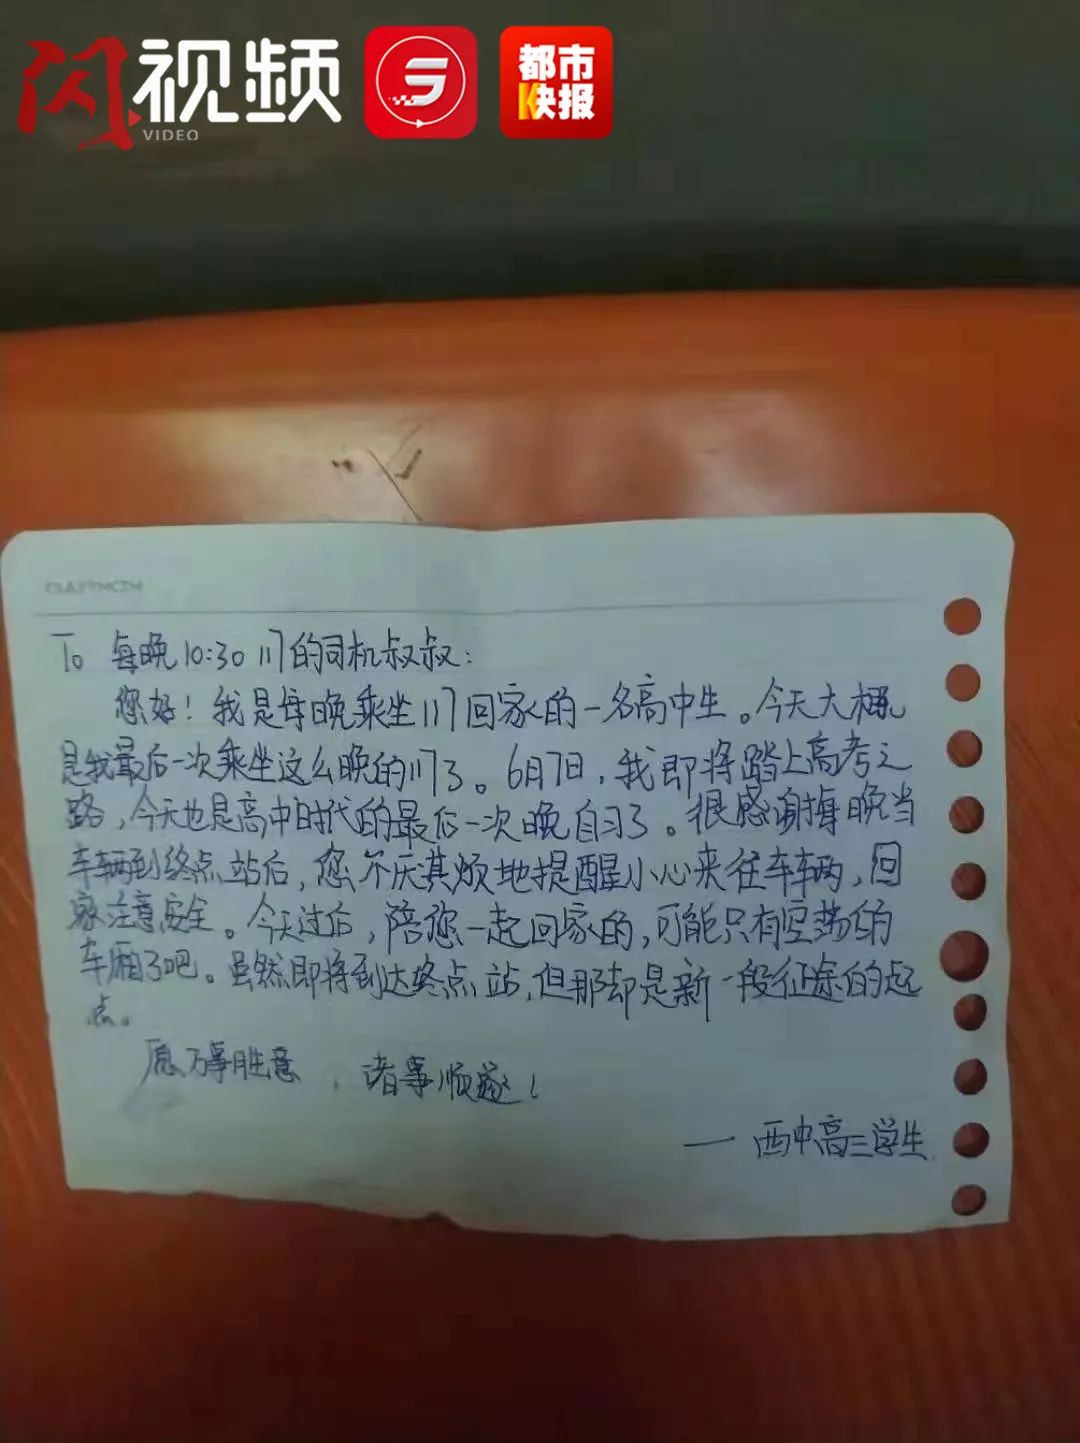 闪视频
VIDEO
都市
快报
To 每晚10:30 117的司机叔叔:
您好！我是每晚乘坐117回家的一名高中生。今天大概
是我最后一次乘坐这么晚的117了。6月7日，我即将踏上高考之
路，今天也是高中时代的最后一次晚自习了。很感谢每晚当
车辆到终点站后，您不厌其烦地提醒小心来往车辆，回
家注意安全。今天过后，陪您一起回家的，可能只有空荡的
车厢了吧。虽然即将到达终点站，但那却是新一段征途的起
点。
愿万事胜意，诸事顺遂！
— 西中高三学生